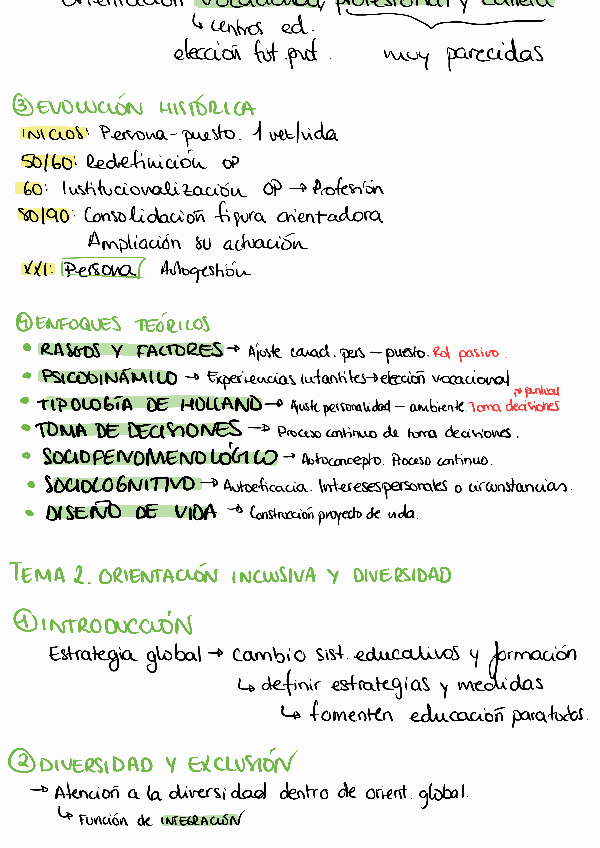 Orientación vocacional, profesional y carrera
↳ centros ed.
elección fut. prof. muy parecidas
③ EVOLUCIÓN HISTÓRICA
INICIOS: Persona - puesto. 1 vez/vida
50/60: Redefinición OP
60: Institucionalización OP → Profesión
80/90: Consolidación figura orientadora
Ampliación su actuación
XXI: Persona Autogestión
④ ENFOQUES TEÓRICOS
• RASGOS Y FACTORES → Ajuste caract. pers - puesto. Rol pasivo.
• PSICODINÁMICO → Experiencias infantiles → elección vocacional
↱ puntual
• TIPOLOGÍA DE HOLLAND → Ajuste personalidad - ambiente. Toma decisiones
• TOMA DE DECISIONES → Proceso continuo de toma decisiones.
• SOCIOFENOMENOLÓGICO → Autoconcepto. Proceso continuo.
• SOCIOCOGNITIVO → Autoeficacia. Intereses personales o circunstancias.
• DISEÑO DE VIDA → Construcción proyecto de vida.
TEMA 2. ORIENTACIÓN INCLUSIVA Y DIVERSIDAD
① INTRODUCCIÓN
Estrategia global → cambio sist. educativos y formación
↳ definir estrategias y medidas
↳ fomenten educación para todos.
② DIVERSIDAD Y EXCLUSIÓN
→ Atención a la diversidad dentro de orient. global.
↳ Función de INTEGRACIÓN